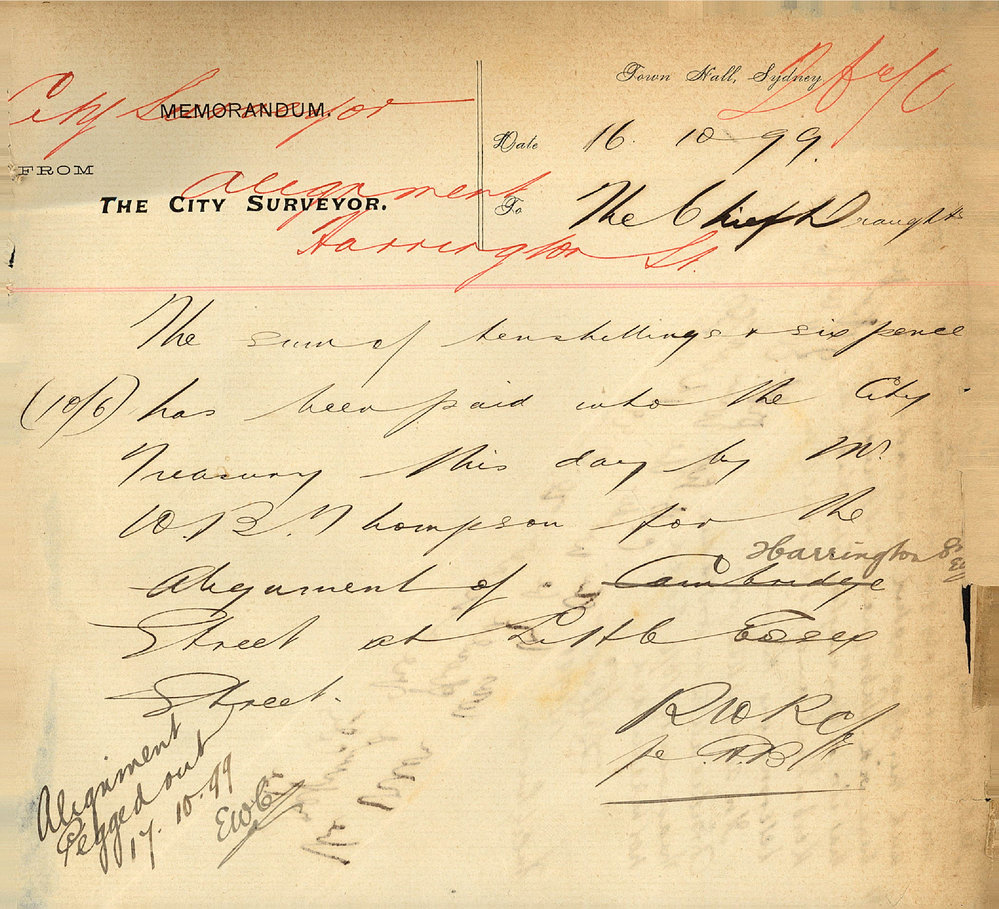 City Surveyor
MEMORANDUM.
FROM
THE CITY SURVEYOR.
Alignment
Harrington St.
Town Hall, Sydney
Date 16. 10. 99.
To The Chief Draughts
The sum of ten shillings & six pence
(10/6) has been paid into the City
Treasury this day by Mr.
W. B. Thompson for the
Harrington St
Alignment of Cambridge
Street at Little Essex
Street.
Alignment
Pegged out
17. 10. 99